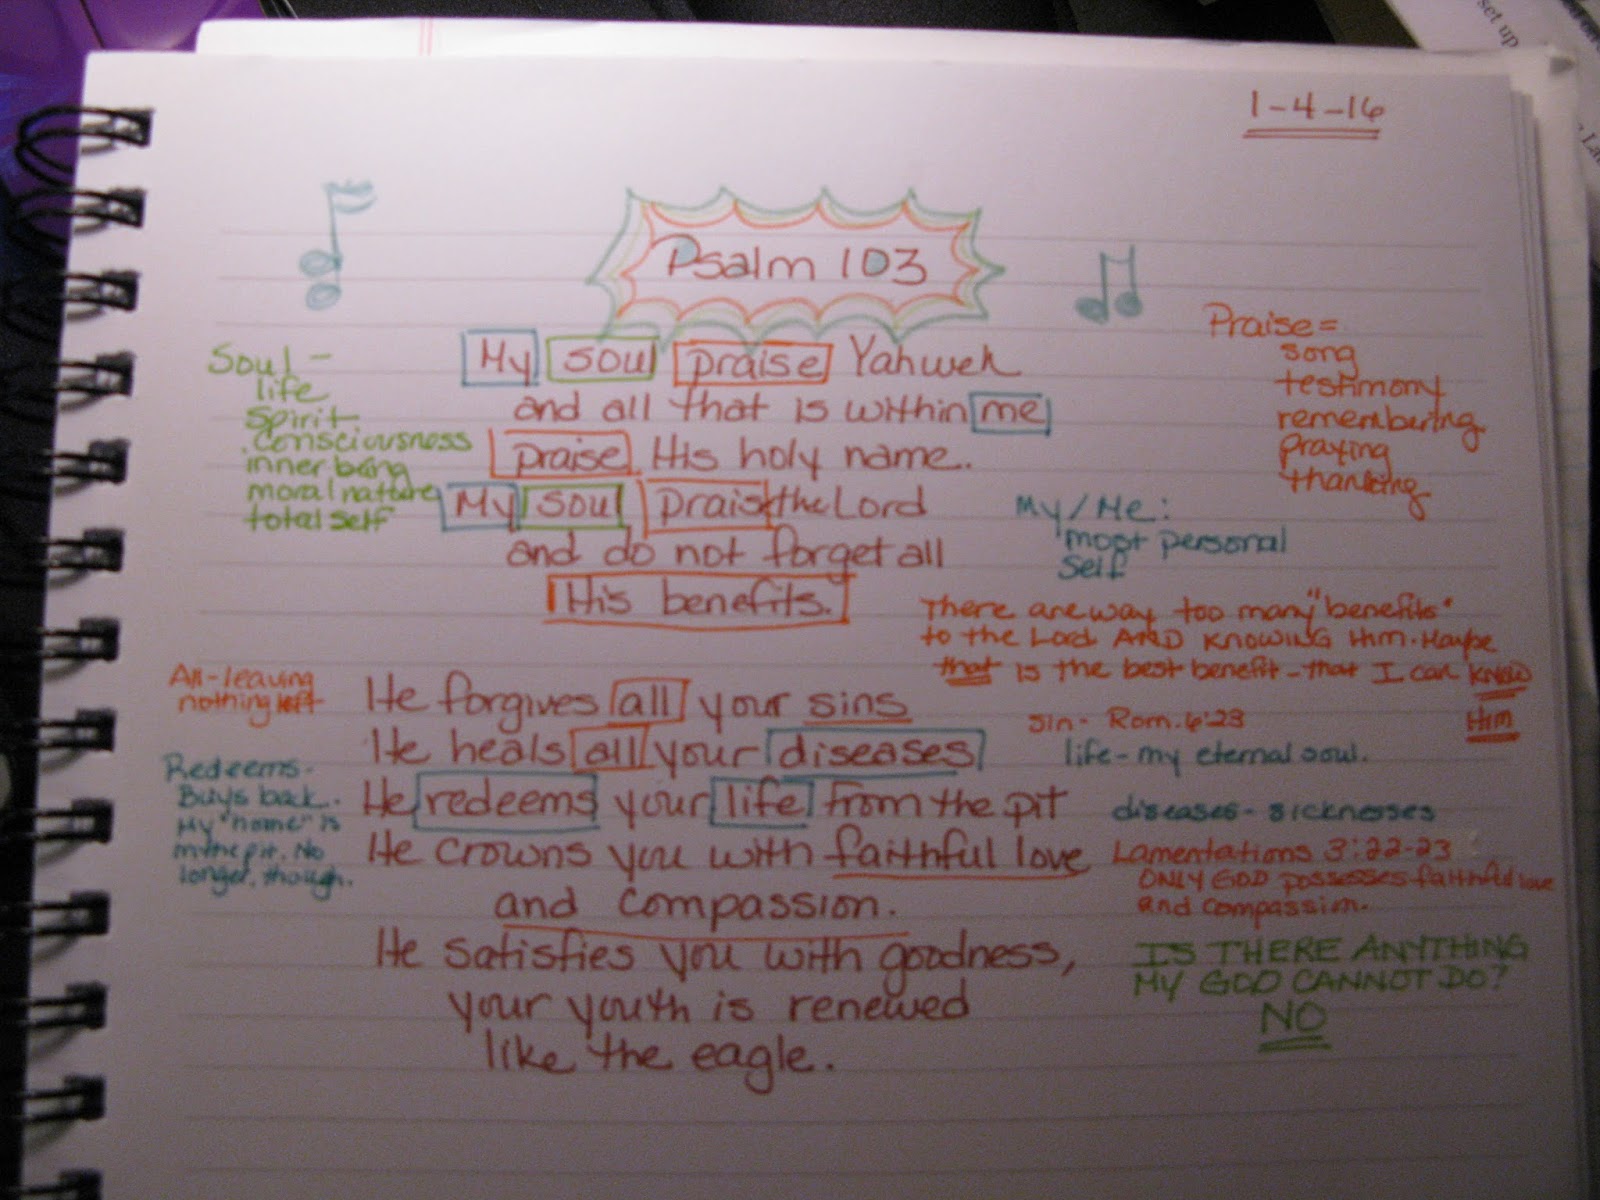 set up
1-4-16
Psalm 103
My soul praise Yahweh
and all that is within me
praise His holy name.
My soul praise the Lord
and do not forget all
His benefits.
Soul -
life
spirit
consciousness
inner being
moral nature
total self
Praise =
song
testimony
remembering
praying
thanking
My/Me:
most personal
self
There are way too many "benefits"
to the Lord AND KNOWING Him. Maybe
that is the best benefit - that I can KNOW
Him
All - leaving
nothing left
He forgives all your sins
He heals all your diseases
He redeems your life from the pit
He crowns you with faithful love
and compassion.
He satisfies you with goodness,
your youth is renewed
like the eagle.
Redeems -
Buys back.
My "home" is
in the pit. No
longer, though.
sin - Rom. 6:23
life - my eternal soul.
diseases - sicknesses
Lamentations 3:22-23
ONLY GOD possesses faithful love
and compassion.
IS THERE ANYTHING
MY GOD CANNOT DO?
NO